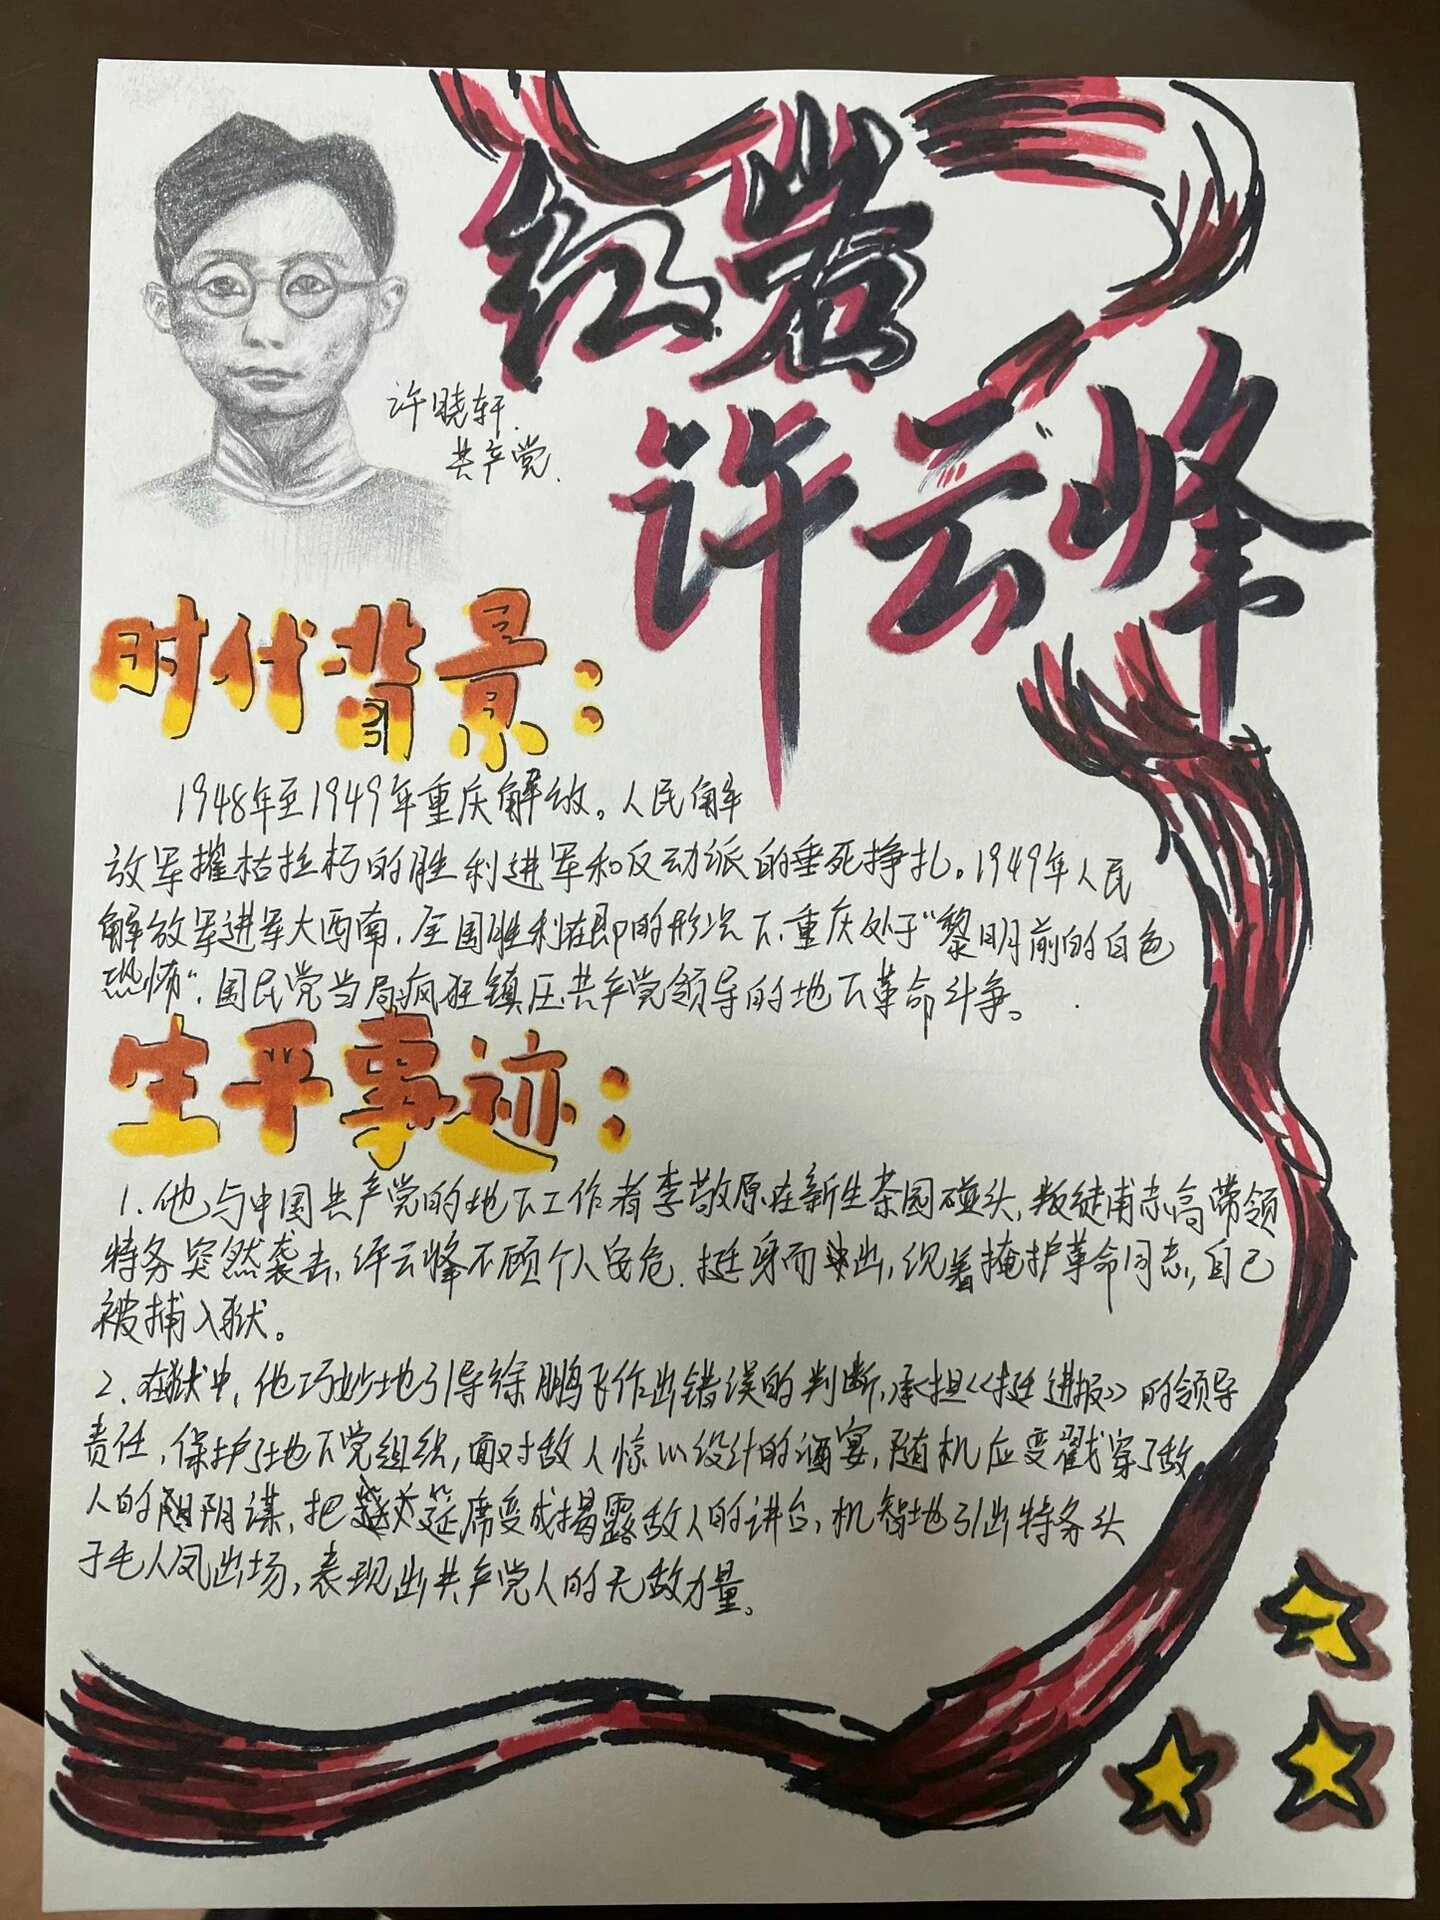 红岩
许云峰
许晓轩.
共产党.
时代背景：
1948年至1949年重庆解放。人民解
放军摧枯拉朽的胜利进军和反动派的垂死挣扎。1949年人民
解放军进军大西南，全国胜利在即的形况下，重庆处于“黎明前的白色
恐怖”，国民党当局疯狂镇压共产党领导的地下革命斗争。
生平事迹：
1.他与中国共产党的地下工作者李敬原在新生茶园碰头，叛徒甫志高带领
特务突然袭击，许云峰不顾个人安危，挺身而出，沉着掩护革命同志，自己
被捕入狱。
2.在狱中，他巧妙地引导徐鹏飞作出错误的判断，承担《挺进报》的领导
责任，保护了地下党组织，面对敌人惊心设计的酒宴，随机应变戳穿了敌
人的阴谋，把筵席变成揭露敌人的讲台，机智地引出特务头
子毛人凤出场，表现出共产党人的无敌力量。